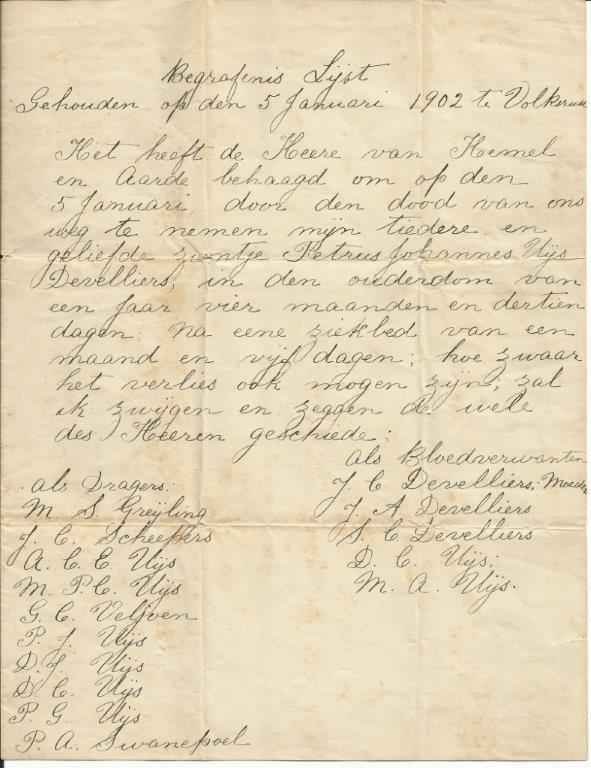 Begrafenis Lijst
Gehouden op den 5 Januari 1902 te Volksrust
Het heeft de Heere van Hemel
en Aarde behaagd om op den
5 Januari door den dood van ons
weg te nemen mijn tiedere en
geliefde zoontje Petrus Johannes Uijs
Develliers, in den ouderdom van
een Jaar vier maanden en dertien
dagen: na eene ziekbed van een
maand en vijf dagen; hoe zwaar
het verlies ook mogen zijn; zal
ik zwijgen en zeggen de wele
des Heeren geschiede:
als Bloedverwanten
J C Develliers; Moeder
J A Develliers
S. C. Develliers
D. C. Uijs;
M. A. Uijs.
als Dragers:
M S Greijling
J. C. Scheepers
A. C. E. Uijs
M. P. C. Uijs
G. C. Veljven
P. J. Uijs
D. J. Uijs
D. C. Uijs
P. G. Uijs
P. A. Swanepoel